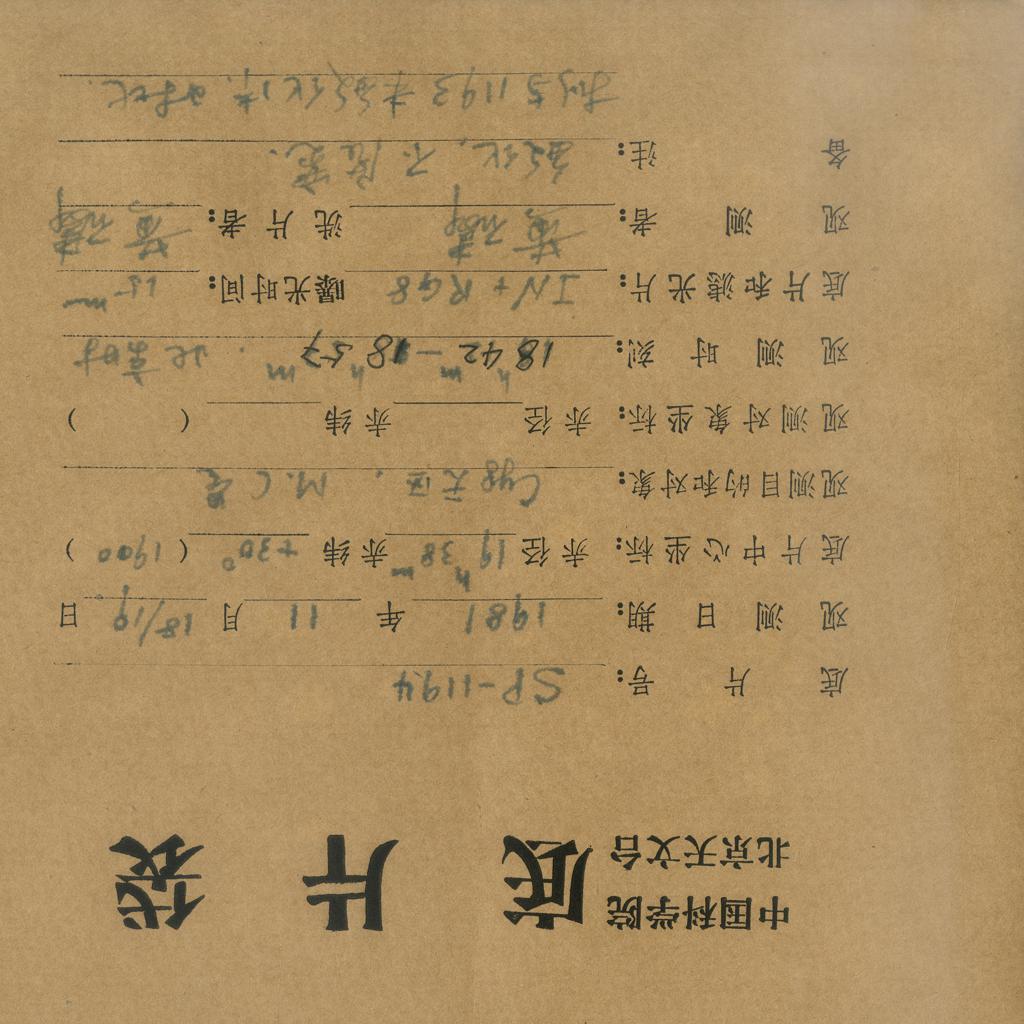 中国科学院
北京天文台
底片袋
底片号: SP-1194
观测日期: 1981 年 11 月 18/19 日
底片中心坐标: 赤径 19h 38m 赤纬 +30° (1900)
观测目的和对象: Cyg 天区, M.C 星
观测对象坐标: 赤径 赤纬 ( )
观测时刻: 18h 42m — 18h 57m. 北京时
底片和滤光片: IN + RG8 曝光时间: 15m
观测者: 黄 洗片者: 黄
备注: 敏化, 不
1193 未敏化